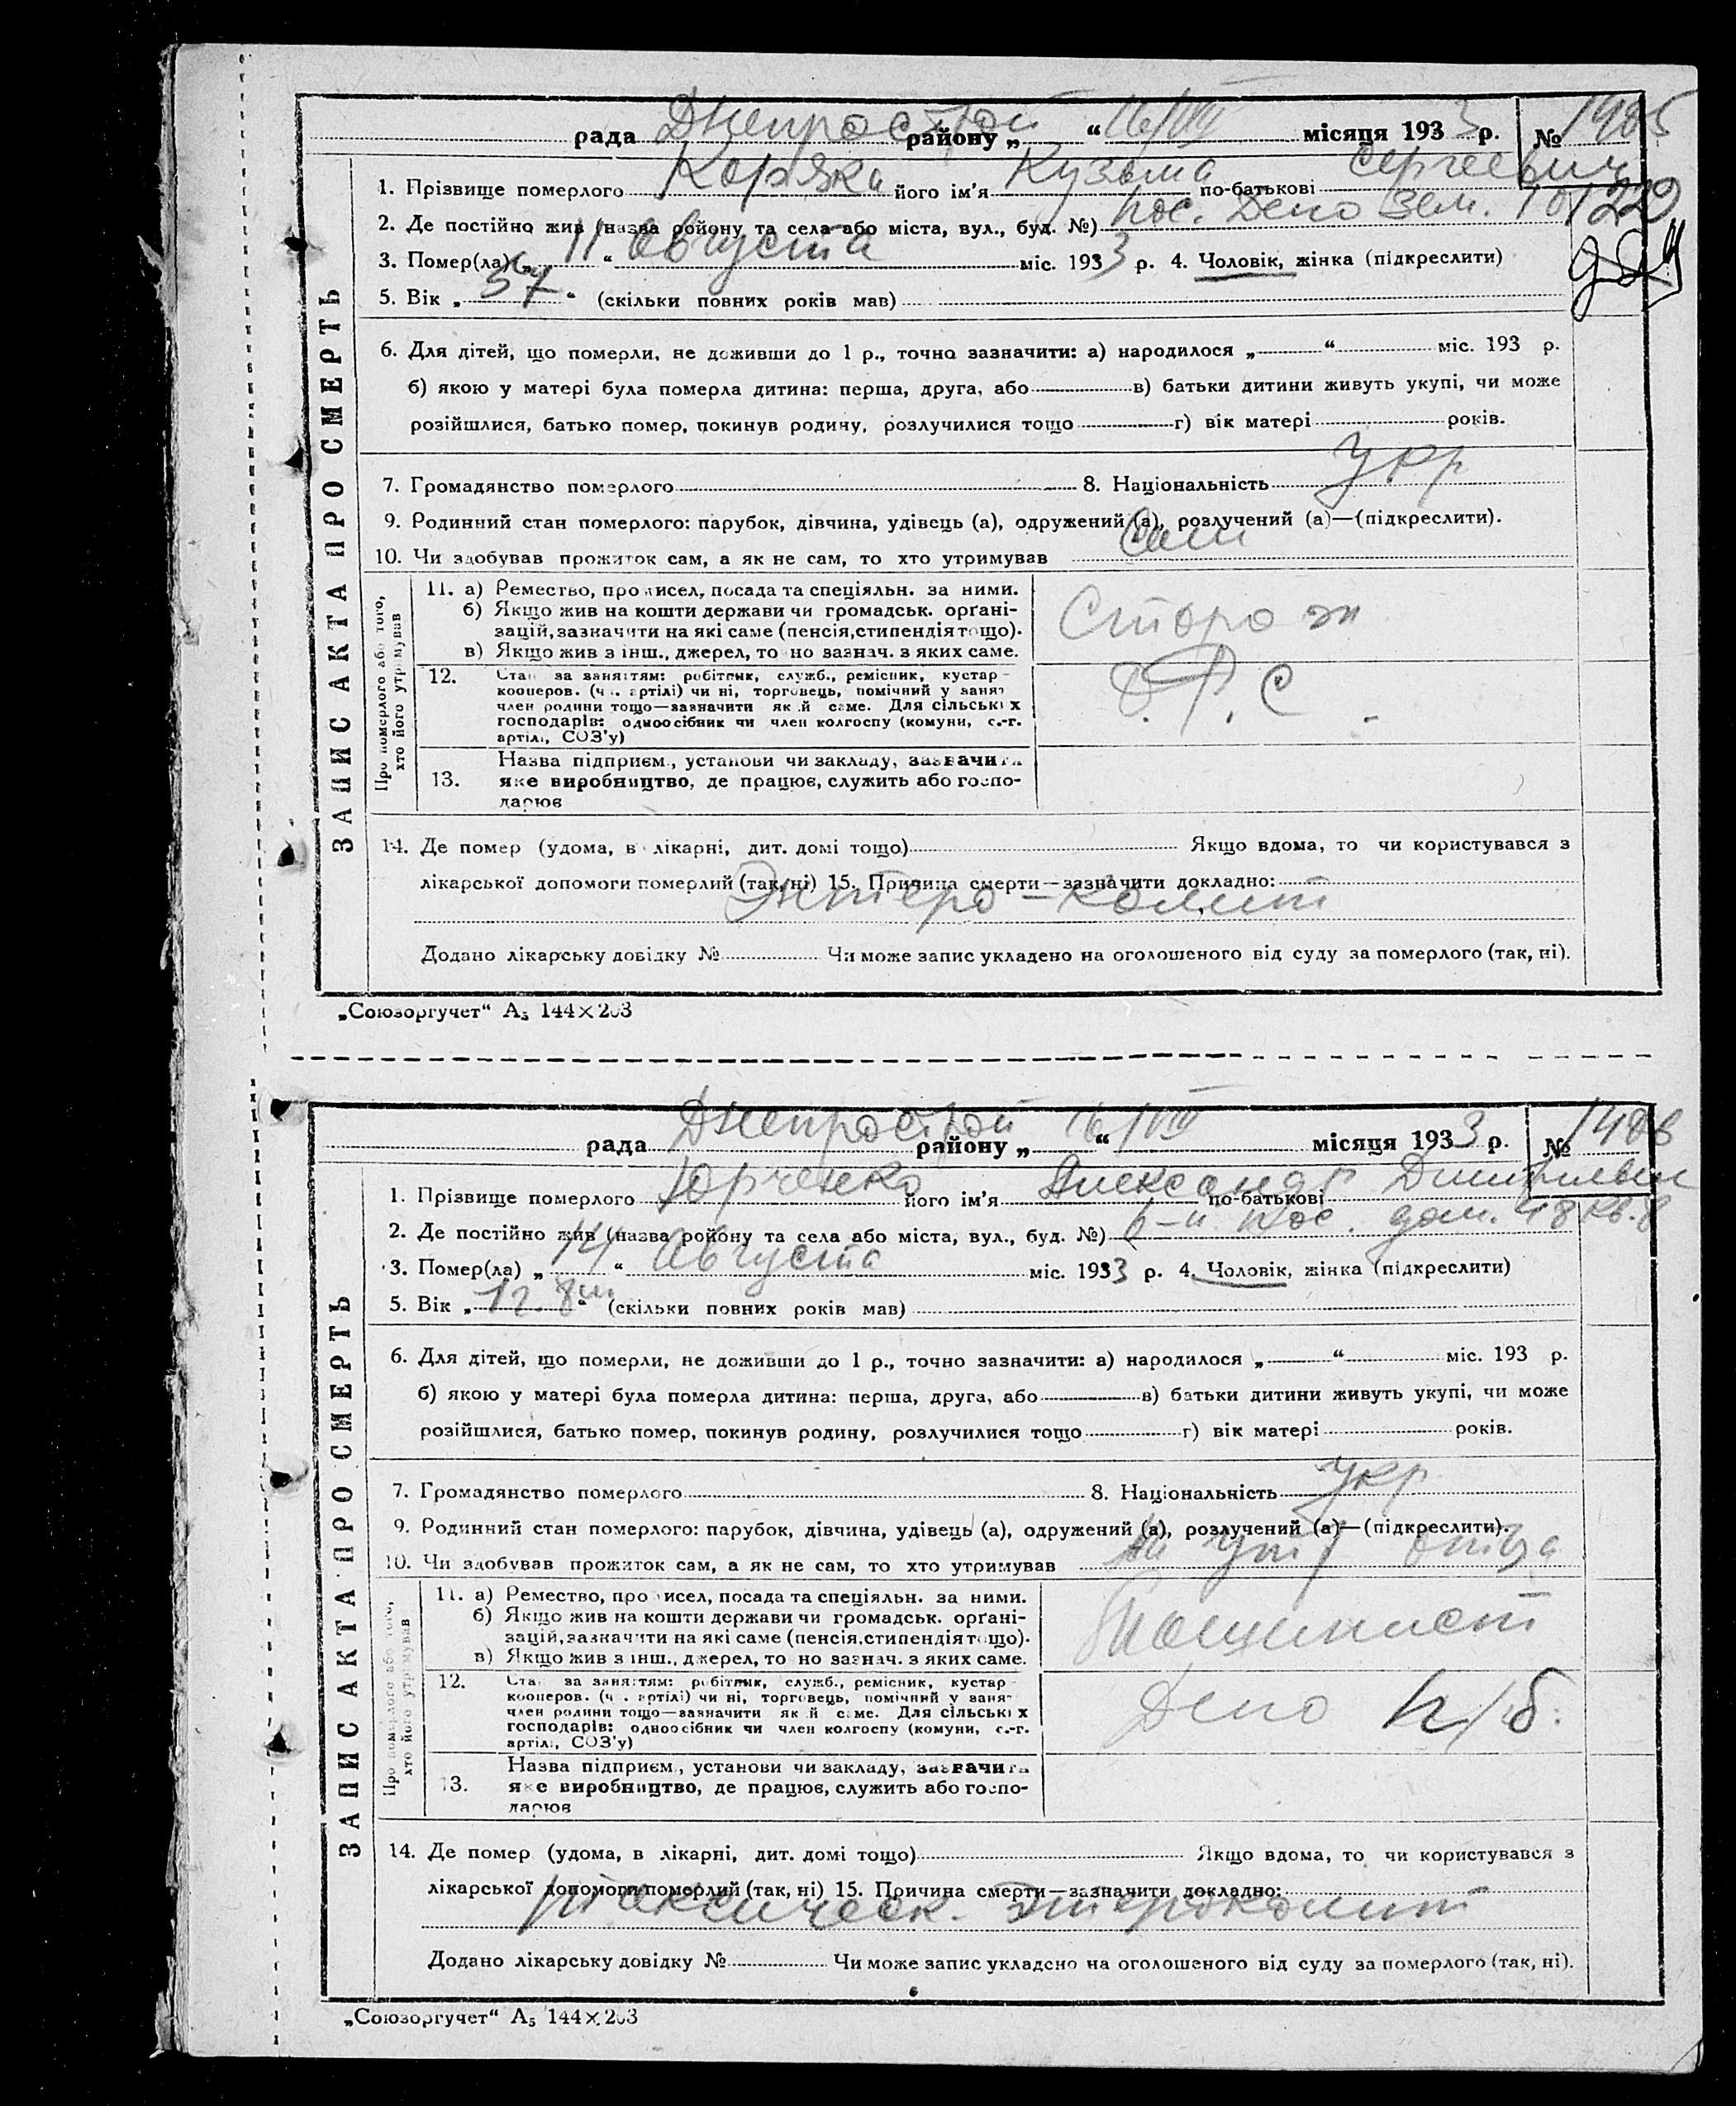 ЗАПИС АКТА ПРО СМЕРТЬ
рада Днепрострой району „16/VIII“ місяця 1933 р. № 1485
1. Прізвище померлого Коряка його ім'я Кузьма по-батькові Сергеевич
2. Де постійно жив (назва району та села або міста, вул., буд. №) пос. Депо зем.
3. Помер(ла) „11“ Августа міс. 1933 р. 4. Чоловік, жінка (підкреслити)
5. Вік „57“ (скільки повних років мав)
6. Для дітей, що померли, не доживши до 1 р., точно зазначити: а) народилося „ “ міс. 193 р.
б) якою у матері була померла дитина: перша, друга, або в) батьки дитини живуть укупі, чи може
розійшлися, батько помер, покинув родину, розлучилися тощо г) вік матері років.
7. Громадянство померлого 8. Національність укр
9. Родинний стан померлого: парубок, дівчина, удівець (а), одружений (а), розлучений (а)—(підкреслити).
10. Чи здобував прожиток сам, а як не сам, то хто утримував Сам
Про померлого або того, хто його утримував
11. а) Ремество, промисел, посада та спеціяльн. за ними.
б) Якщо жив на кошти держави чи громадськ. орґані-
зацій, зазначити на які саме (пенсія, стипендія тощо).
в) Якщо жив з інш., джерел, точно зазнач. з яких саме.
Сторож
12. Стан за заняттям: робітник, служб., ремісник, кустар
кооперов. (чл. артілі) чи ні, торговець, помічний у занят
член родини тощо—зазначити який саме. Для сільських
господарів: одноосібник чи член колгоспу (комуни, с.-г.
артілі, СОЗ'у)
13. Назва підприєм., установи чи закладу, зазначити
яке виробництво, де працює, служить або госпо-
дарює
14. Де помер (удома, в лікарні, дит. домі тощо) Якщо вдома, то чи користувався з
лікарської допомоги померлий (так, ні) 15. Причина смерти—зазначити докладно:
Энтеро-колит
Додано лікарську довідку № Чи може запис укладено на оголошеного від суду за померлого (так, ні).
„Союзоргучет“ А₅ 144×203
ЗАПИС АКТА ПРО СМЕРТЬ
рада Днепрострой району „16“/VIII місяця 1933 р. № 1486
1. Прізвище померлого Юрченко його ім'я Александр по-батькові Дмитриевич
2. Де постійно жив (назва району та села або міста, вул., буд. №) 6-й пос. дом. 48 кв. 8
3. Помер(ла) „14“ Августа міс. 1933 р. 4. Чоловік, жінка (підкреслити)
5. Вік „1г. 8м“ (скільки повних років мав)
6. Для дітей, що померли, не доживши до 1 р., точно зазначити: а) народилося „ “ міс. 193 р.
б) якою у матері була померла дитина: перша, друга, або в) батьки дитини живуть укупі, чи може
розійшлися, батько помер, покинув родину, розлучилися тощо г) вік матері років.
7. Громадянство померлого 8. Національність укр
9. Родинний стан померлого: парубок, дівчина, удівець (а), одружений (а), розлучений (а)—(підкреслити).
10. Чи здобував прожиток сам, а як не сам, то хто утримував на отца
Про померлого або того, хто його утримував
11. а) Ремество, промисел, посада та спеціяльн. за ними.
б) Якщо жив на кошти держави чи громадськ. орґані-
зацій, зазначити на які саме (пенсія, стипендія тощо).
в) Якщо жив з інш., джерел, точно зазнач. з яких саме.
Машинист
12. Стан за заняттям: робітник, служб., ремісник, кустар
кооперов. (чл. артілі) чи ні, торговець, помічний у занят
член родини тощо—зазначити який саме. Для сільських
господарів: одноосібник чи член колгоспу (комуни, с.-г.
артілі, СОЗ'у)
Депо п/б.
13. Назва підприєм., установи чи закладу, зазначити
яке виробництво, де працює, служить або госпо-
дарює
14. Де помер (удома, в лікарні, дит. домі тощо) Якщо вдома, то чи користувався з
лікарської допомоги померлий (так, ні) 15. Причина смерти—зазначити докладно:
токсическ. Энтероколит
Додано лікарську довідку № Чи може запис укладено на оголошеного від суду за померлого (так, ні).
„Союзоргучет“ А₅ 144×203